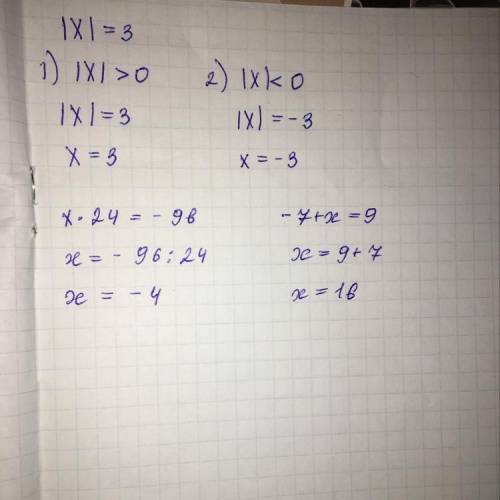 |x| = 3
1) |x| > 0
|x| = 3
x = 3
2) |x| < 0
|x| = -3
x = -3
x · 24 = - 96
x = - 96 : 24
x = - 4
- 7 + x = 9
x = 9 + 7
x = 16